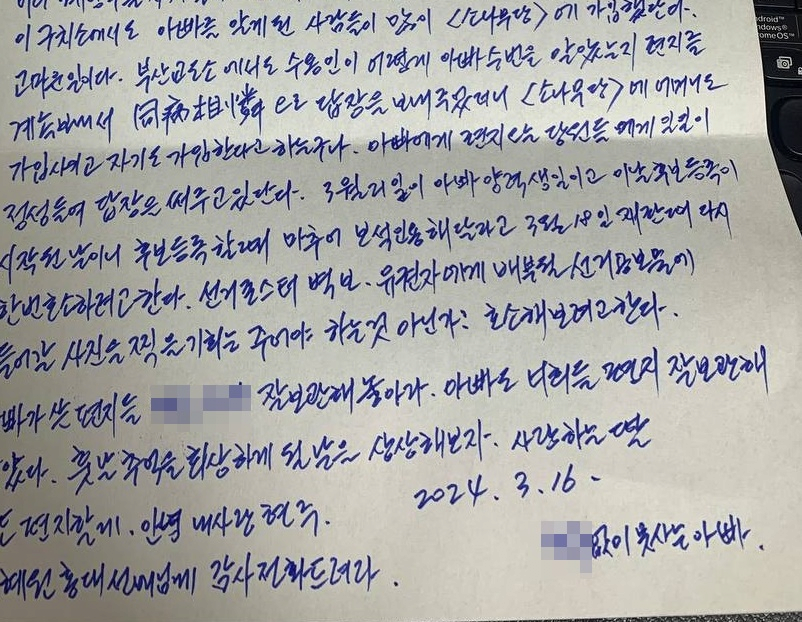 이 구치소에서도 아빠를 알게된 사람들이 많이 <소나무당>에 가입했단다.
고마운일이다. 부산교도소에서도 수용인이 어떻게 아빠 수번을 알았는지 편지를
계속보내서 同病相憐으로 답장을 보내주었더니 <소나무당>에 어머니도
가입시키고 자기도 가입한다고 하는구나. 아빠에게 편지오는 당원들에게 일일이
정성들여 답장을 써주고있단다. 3월21일이 아빠 양력생일이고 이날 후보등록이
시작된 날이니 후보등록할때 마추어 보석인용해달라고 3월18일 재판때 다시
한번호소하려고한다. 선거포스터 벽보. 유권자에게 배부될 선거공보물에
들어갈 사진을 찍을기회는 주어야 하는것 아닌가? 호소해보려고한다.
빠가 쓴 편지들 잘보관해 놓아라. 아빠도 너희들 편지 잘보관해
았다. 훗날 추억을 회상하게 될 날을 상상해보자. 사랑하는 딸
또 편지할게. 안녕 내사랑 현주.
2024. 3. 16.
없이 못사는 아빠.
선생님께 감사전화드려라.
android™
Windows®
ChromeOS™